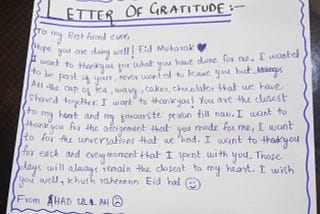 LETTER OF GRATITUDE:-
To my best friend ever,
Hope you are doing well! Eid Mubarak
I want to thankyou for what you have done for me. I wanted
to be part of your, never wanted to leave you but things
All the cup of tea, wavy, cakes, chocolates that we have
shared together. I want to thankyou! You are the closest
to my heart and my favourite person till now. I want to
thankyou for the assignment that you made for me, I want
to for the conversations that we had. I want to thankyou
for each and everymoment I spent with you. Those
days will always remain the closest to my heart. I wish
you well, khush raheno Eid hai
From